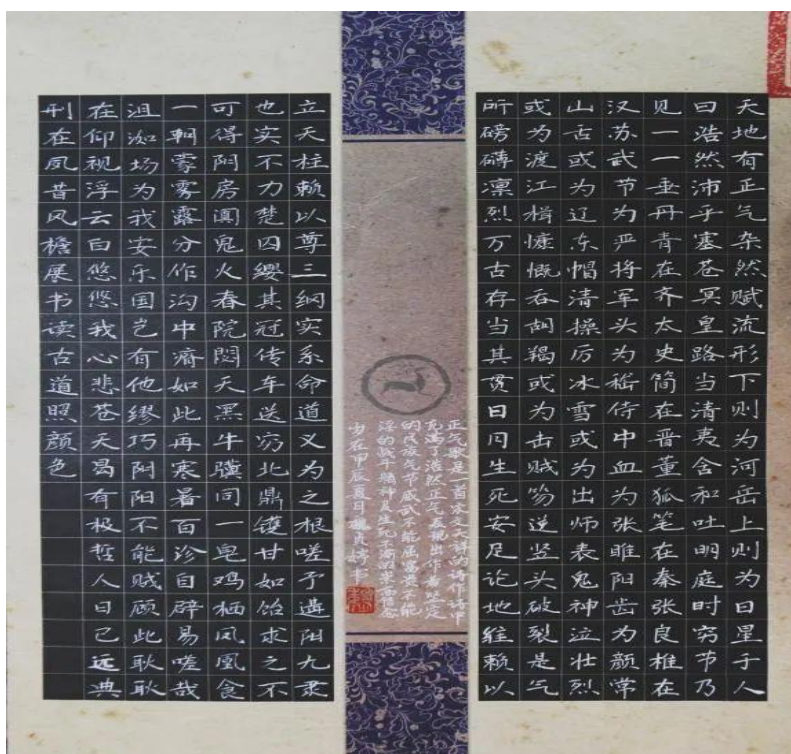 天地有正气杂然赋流形下则为河岳上则为日星于人
曰浩然沛乎塞苍冥皇路当清夷含和吐明庭时穷节乃
见一一垂丹青在齐太史简在晋董狐笔在秦张良椎在
汉苏武节为严将军头为嵇侍中血为张睢阳齿为颜常
山舌或为辽东帽清操厉冰雪或为出师表鬼神泣壮烈
或为渡江楫慷慨吞胡羯或为击贼笏逆竖头破裂是气
所磅礴凛烈万古存当其贯日月生死安足论地维赖以
立天柱赖以尊三纲实系命道义为之根嗟予遘阳九隶
也实不力楚囚缨其冠传车送穷北鼎镬甘如饴求之不
可得阴房阗鬼火春院閟天黑牛骥同一皂鸡栖凤凰食
一朝蒙雾露分作沟中瘠如此再寒暑百沴自辟易嗟哉
沮洳场为我安乐国岂有他缪巧阴阳不能贼顾此耿耿
在仰视浮云白悠悠我心悲苍天曷有极哲人日已远典
刑在夙昔风檐展书读古道照颜色
正气歌是一首宋文天祥的诗作诗中
充满了浩然正气表现出作者坚定
的民族气节威武不能屈富贵不能
淫的战斗精神及生死不渝的崇高信念
岁在甲辰夏月魏贞婷书